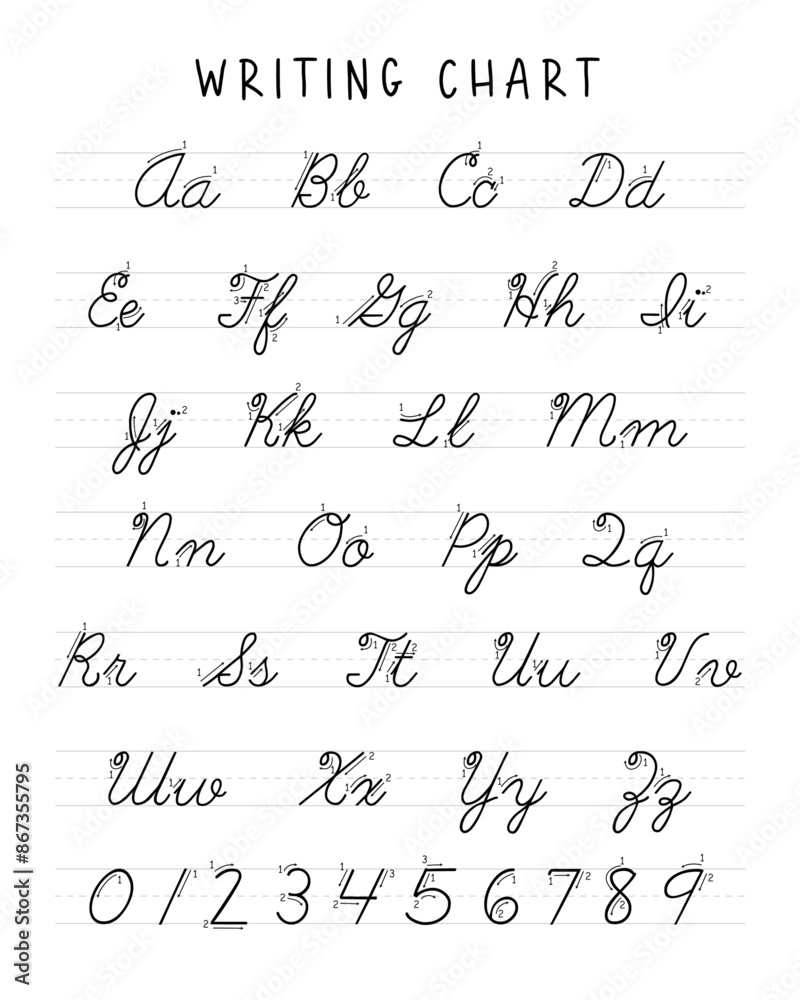 WRITING CHART
Aa Bb Cc Dd
Ee Ff Gg Hh Ii
Jj Kk Ll Mm
Nn Oo Pp Qq
Rr Ss Tt Uu Vv
Ww Xx Yy Zz
0 1 2 3 4 5 6 7 8 9
Adobe Stock | #867355795